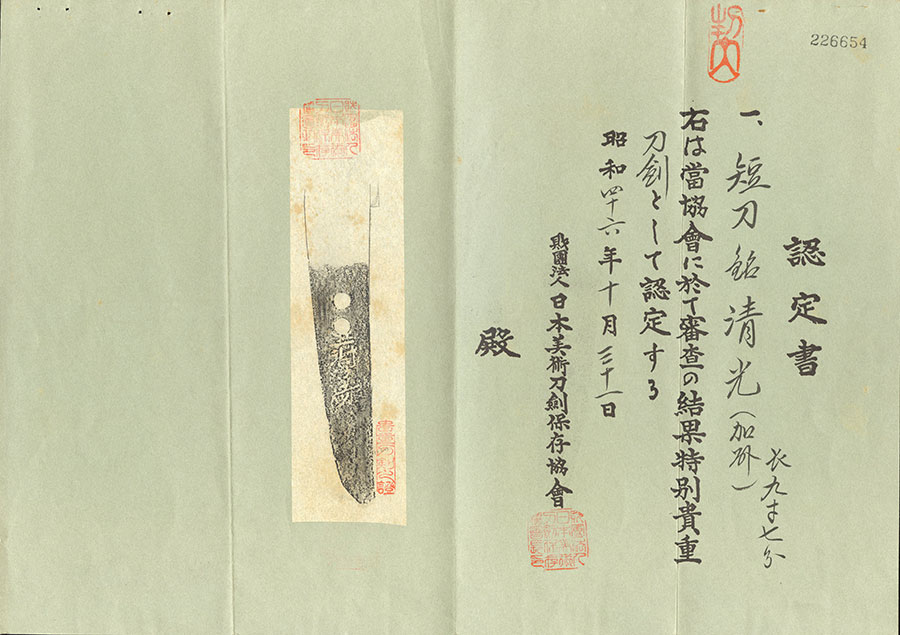 226654
認定書
一、短刀 銘 清光(加州)
長九寸七分
右は當協會に於て審査の結果特別貴重
刀劍として認定する
昭和四十六年十月三十一日
財團法人日本美術刀劍保存協會
殿
清光